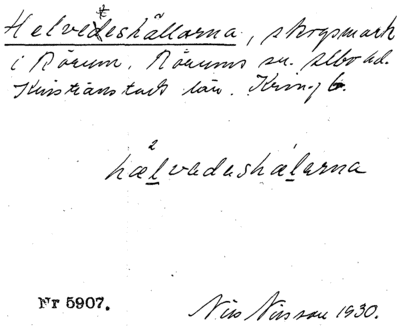 Helvedeshällarna, skogsmark
i Rörum, Rörums sn. Albo hd.
Kristianstads län. Kring 6.
hæl²vadeshælarna
Nr 5907.
Nils Nilsson 1930.